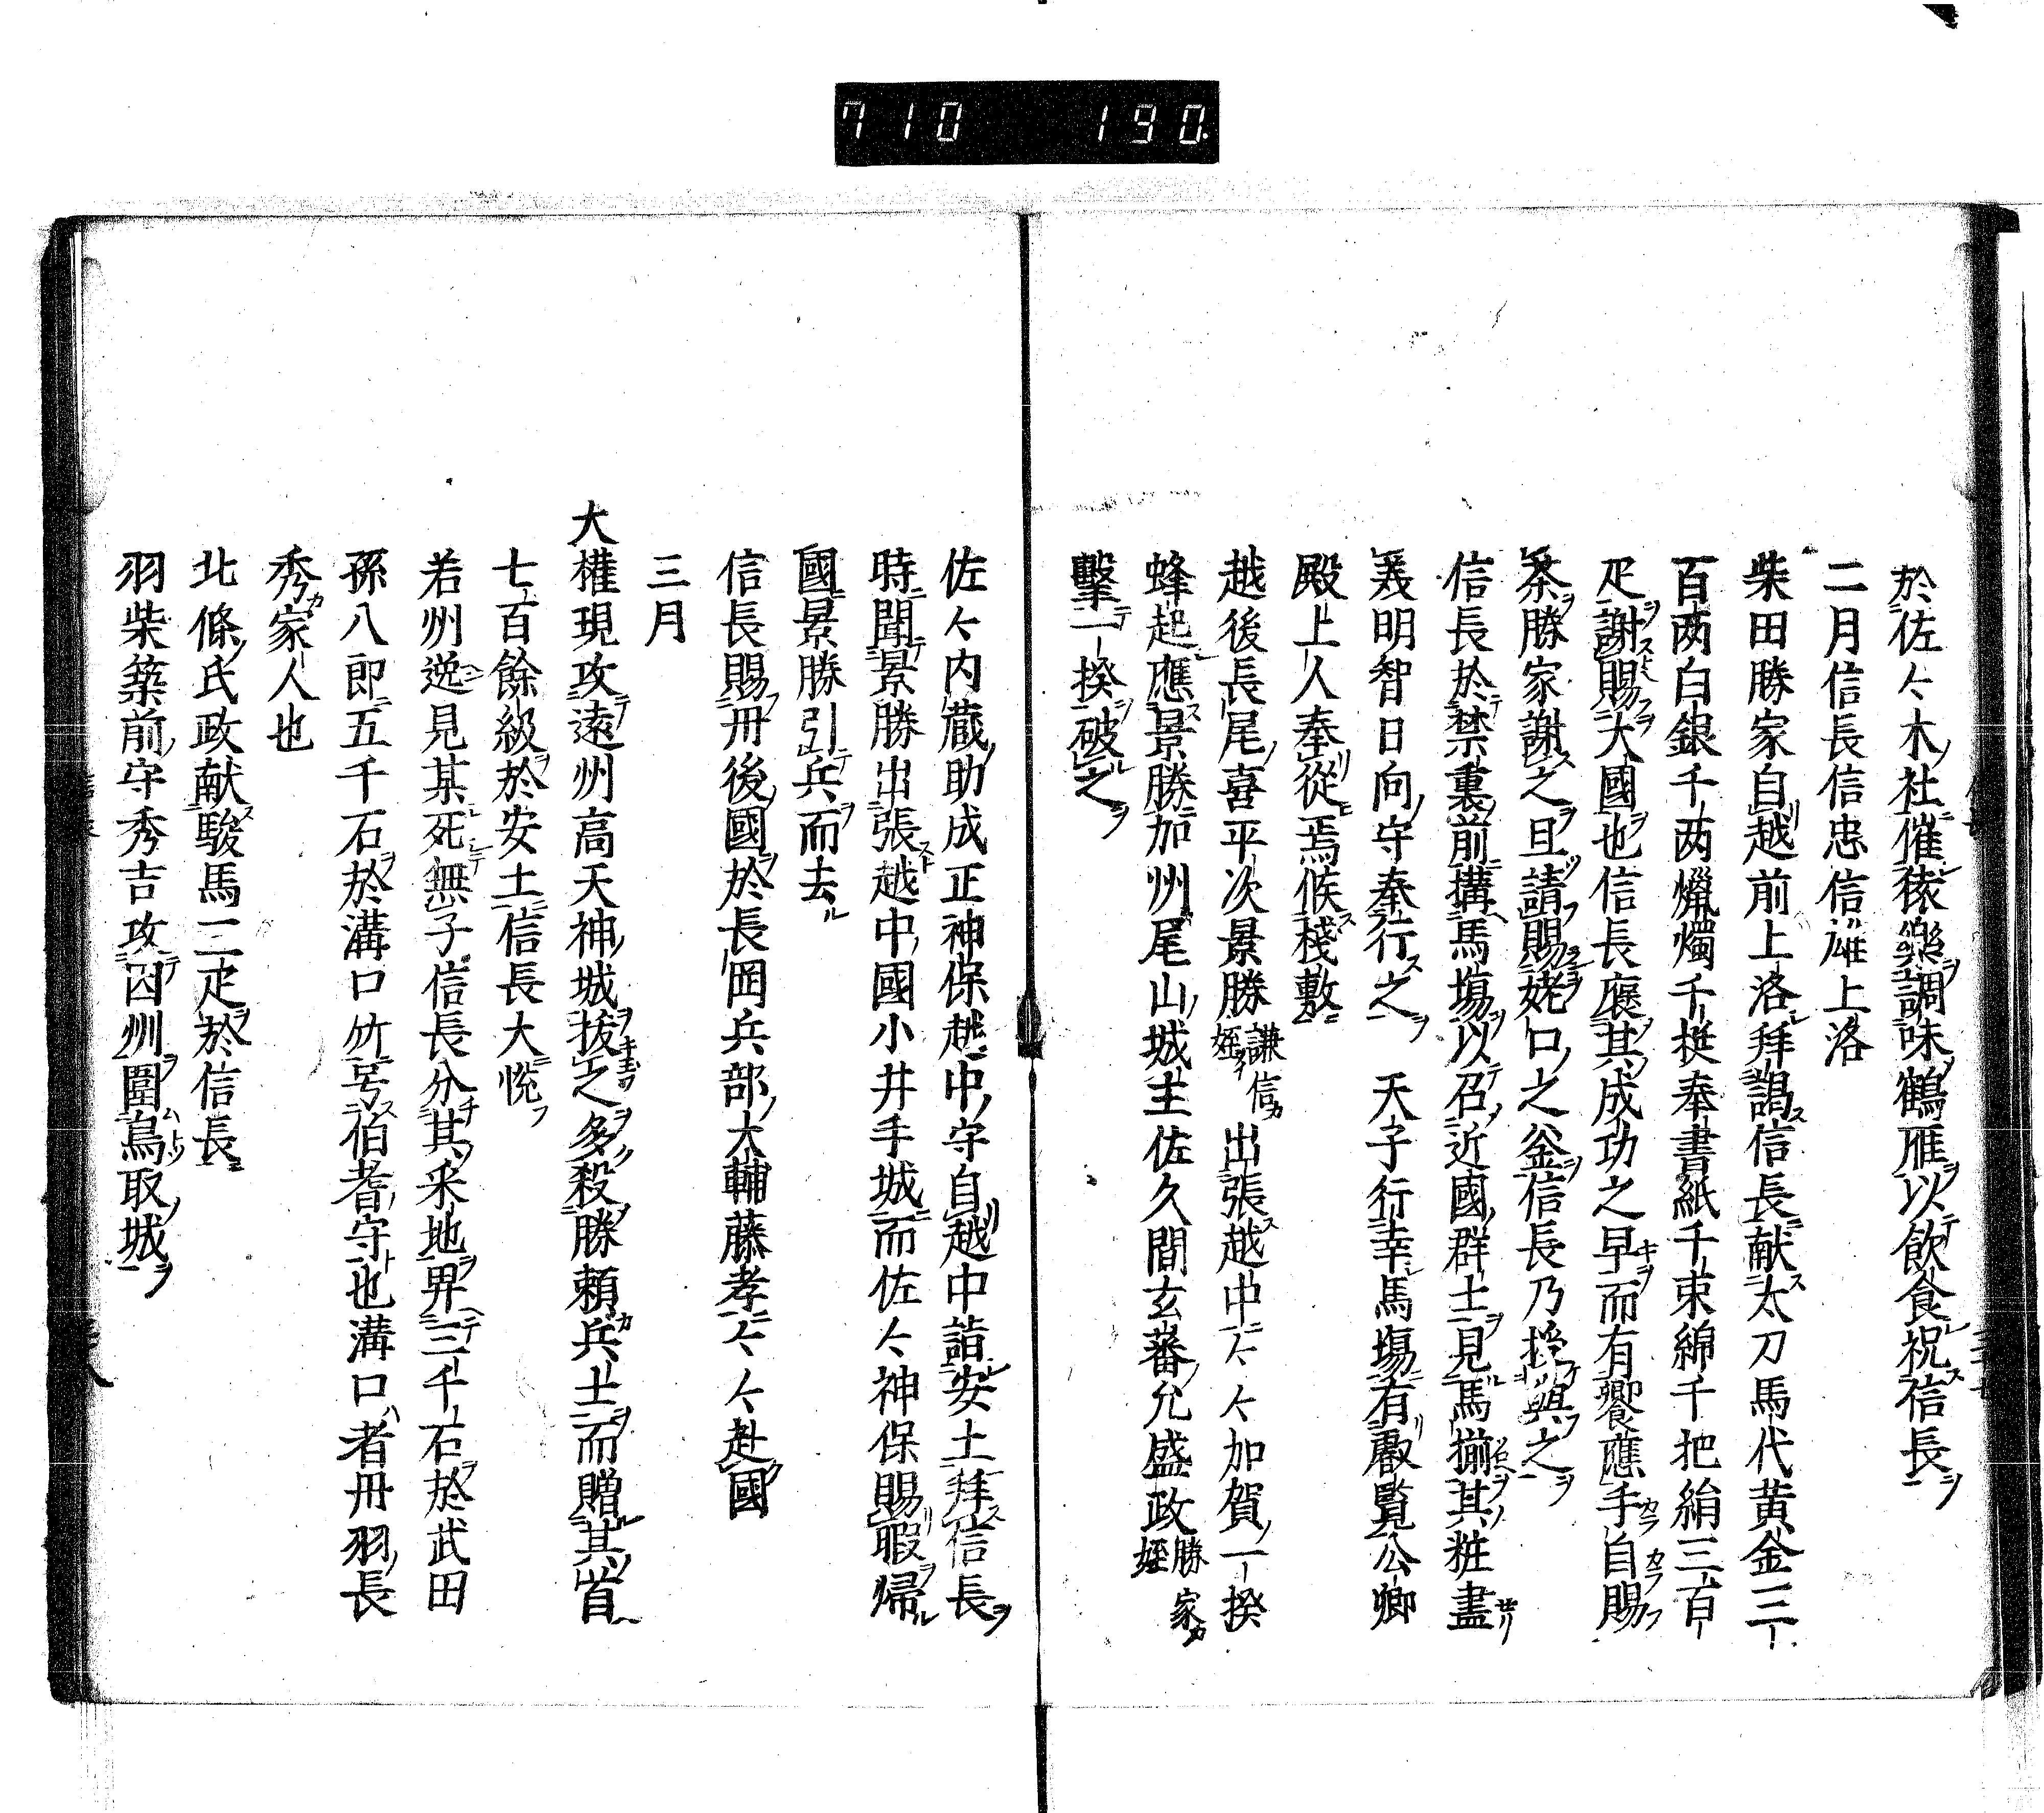 710 190
於佐々木社催猿樂調味鶴雁以飲食祝信長
二月信長信忠信雄上洛
柴田勝家自越前上洛拜謁信長献太刀馬代黄金三
百两白銀千两爉燭千挺奉書紙千束綿千把絹三百
疋謝賜大國也信長褒其成功之早而有饗應手自賜
茶勝家謝之且請賜姥口之釜信長乃授與之
信長於禁裏前搆馬塲以召近國群士見馬揃其粧盡
羙明智日向守奉行之　天子行幸馬塲有叡覧公卿
殿上人奉從焉候棧敷
越後長尾喜平次景勝謙信姪出張越中々々加賀一揆
蜂起應景勝加州尾山城主佐久間玄蕃允盛政勝家姪
擊一揆破之
佐々内蔵助成正神保越中守自越中詣安土拜信長
時聞景勝出張越中國小井手城而佐々神保賜暇帰
國景勝引兵而去
信長賜丹後國於長岡兵部大輔藤孝々々赴國
三月
大權現攻遠州高天神城拔之多殺勝頼兵士而贈其首
七百餘級於安土信長大悅
若州逸見某死無子信長分其采地畀三千石於武田
孫八郎五千石於溝口竹号伯耆守也溝口者丹羽長
秀家人也
北條氏政献駿馬三疋於信長
羽柴築前守秀吉攻因州圍鳥取城